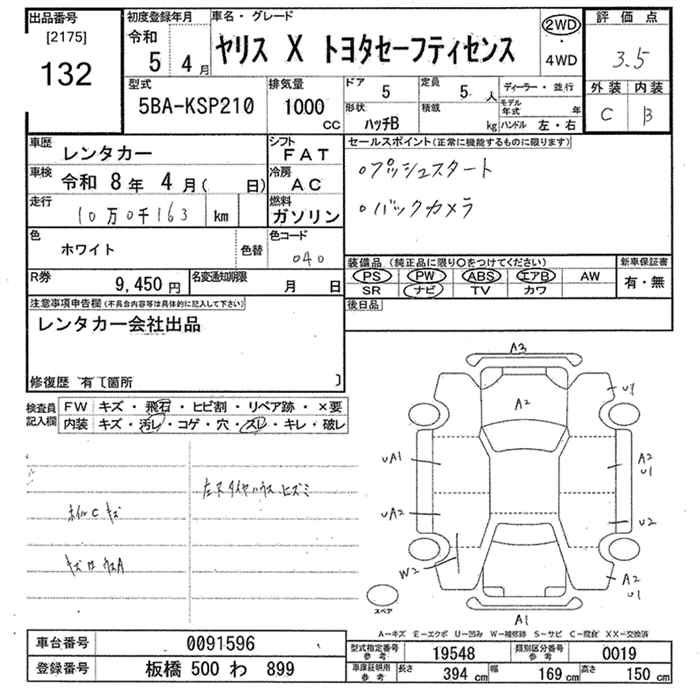 出品番号
[2175]
132
初度登録年月
令和
5 4 月
車名・グレード
ヤリス X トヨタセーフティセンス
2WD
・
4WD
評価点
3.5
外装 内装
C B
型式
5BA-KSP210
排気量
1000
CC
ドア 5
定員 5 人
形状
ハッチB
積載
kg
ディーラー・並行
モデル年式 年
ハンドル 左・右
車歴
レンタカー
シフト
FAT
車検 令和 8年 4月( 日)
冷房
AC
走行
10万0千163 km
燃料
ガソリン
色
ホワイト
色替
色コード
040
R券
9,450円
名変通知期限
月 日
セールスポイント(正常に機能するものに限ります)
○プッシュスタート
○バックカメラ
装備品 (純正品に限り○をつけてください)
PS PW ABS エアB AW
SR ナビ TV カワ
新車保証書
有・無
後日品
注意事項申告欄(不具合内容等は具体的に記入して下さい)
レンタカー会社出品
修復歴 有〔箇所 〕
検査員
記入欄
FW キズ・飛石・ヒビ割・リペア跡・×要
内装 キズ・汚レ・コゲ・穴・スレ・キレ・破レ
左フタイヤハウス ヒズミ
ホイルC キズ
A3
A2
U1
UA1
A2
U1
UA2
U2
W2
A2
U1
A1
スペア
A－キズ E－エクボ U－凹み W－補修跡 S－サビ C－腐食 XX－交換済
車台番号 0091596
登録番号 板橋 500 わ 899
型式指定番号
参考
19548
類別区分番号
参考
0019
車庫証明用
参考
長さ 394 cm 幅 169 cm 高さ 150 cm